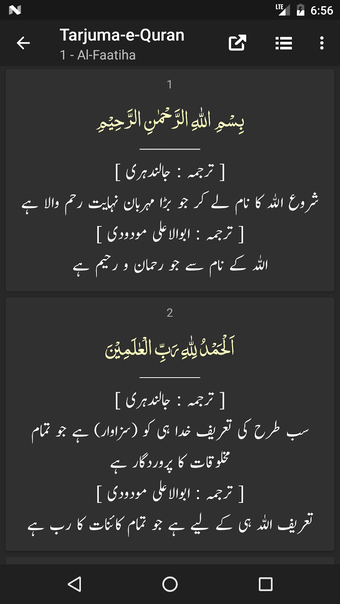 LTE 6:56
Tarjuma-e-Quran
1 - Al-Faatiha
1
بِسْمِ اللّٰهِ الرَّحْمٰنِ الرَّحِيْمِ
[ ترجمہ : جالندہری ]
شروع الله کا نام لے کر جو بڑا مہربان نہایت رحم والا ہے
[ ترجمہ : ابوالاعلی مودودی ]
اللہ کے نام سے جو رحمان و رحیم ہے
2
اَلْحَمْدُ لِلّٰهِ رَبِّ الْعٰلَمِيْنَ
[ ترجمہ : جالندہری ]
سب طرح کی تعریف خدا ہی کو (سزاوار) ہے جو تمام
مخلوقات کا پروردگار ہے
[ ترجمہ : ابوالاعلی مودودی ]
تعریف اللہ ہی کے لیے ہے جو تمام کائنات کا رب ہے